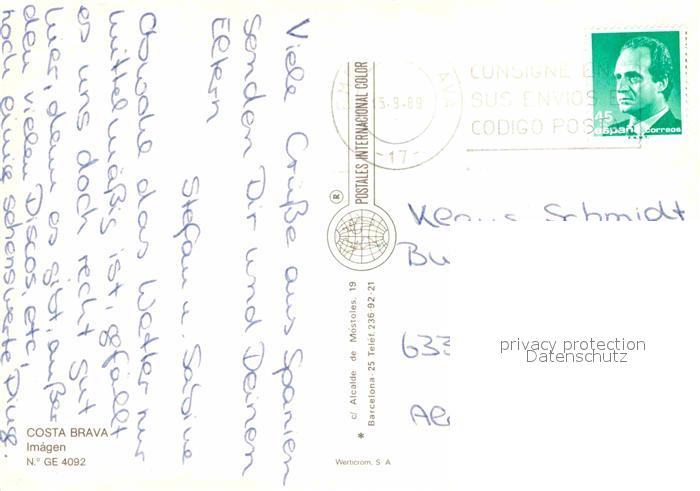 Viele Grüße aus Spanien
senden Dir und Deinen
Eltern
Stefan u. Sabine
Obwohl das Wetter nur
mittelmäßig ist, gefällt
es uns doch recht gut
hier, denn es gibt, außer
den vielen Discos, etc,
noch einige sehenswerte Dinge.
COSTA BRAVA
Imágen
N.º GE 4092
POSTALES INTERNACIONAL COLOR
®
c/ Alcalde de Móstoles, 19
Barcelona-25 Teléf. 236-92-21
*
Werticrom, S A
5-9-89
-17-
CONSIGNE EN
SUS ENVIOS E
CODIGO POS
45
españa correos
Schmidt
Bu
633
privacy protection
Datenschutz